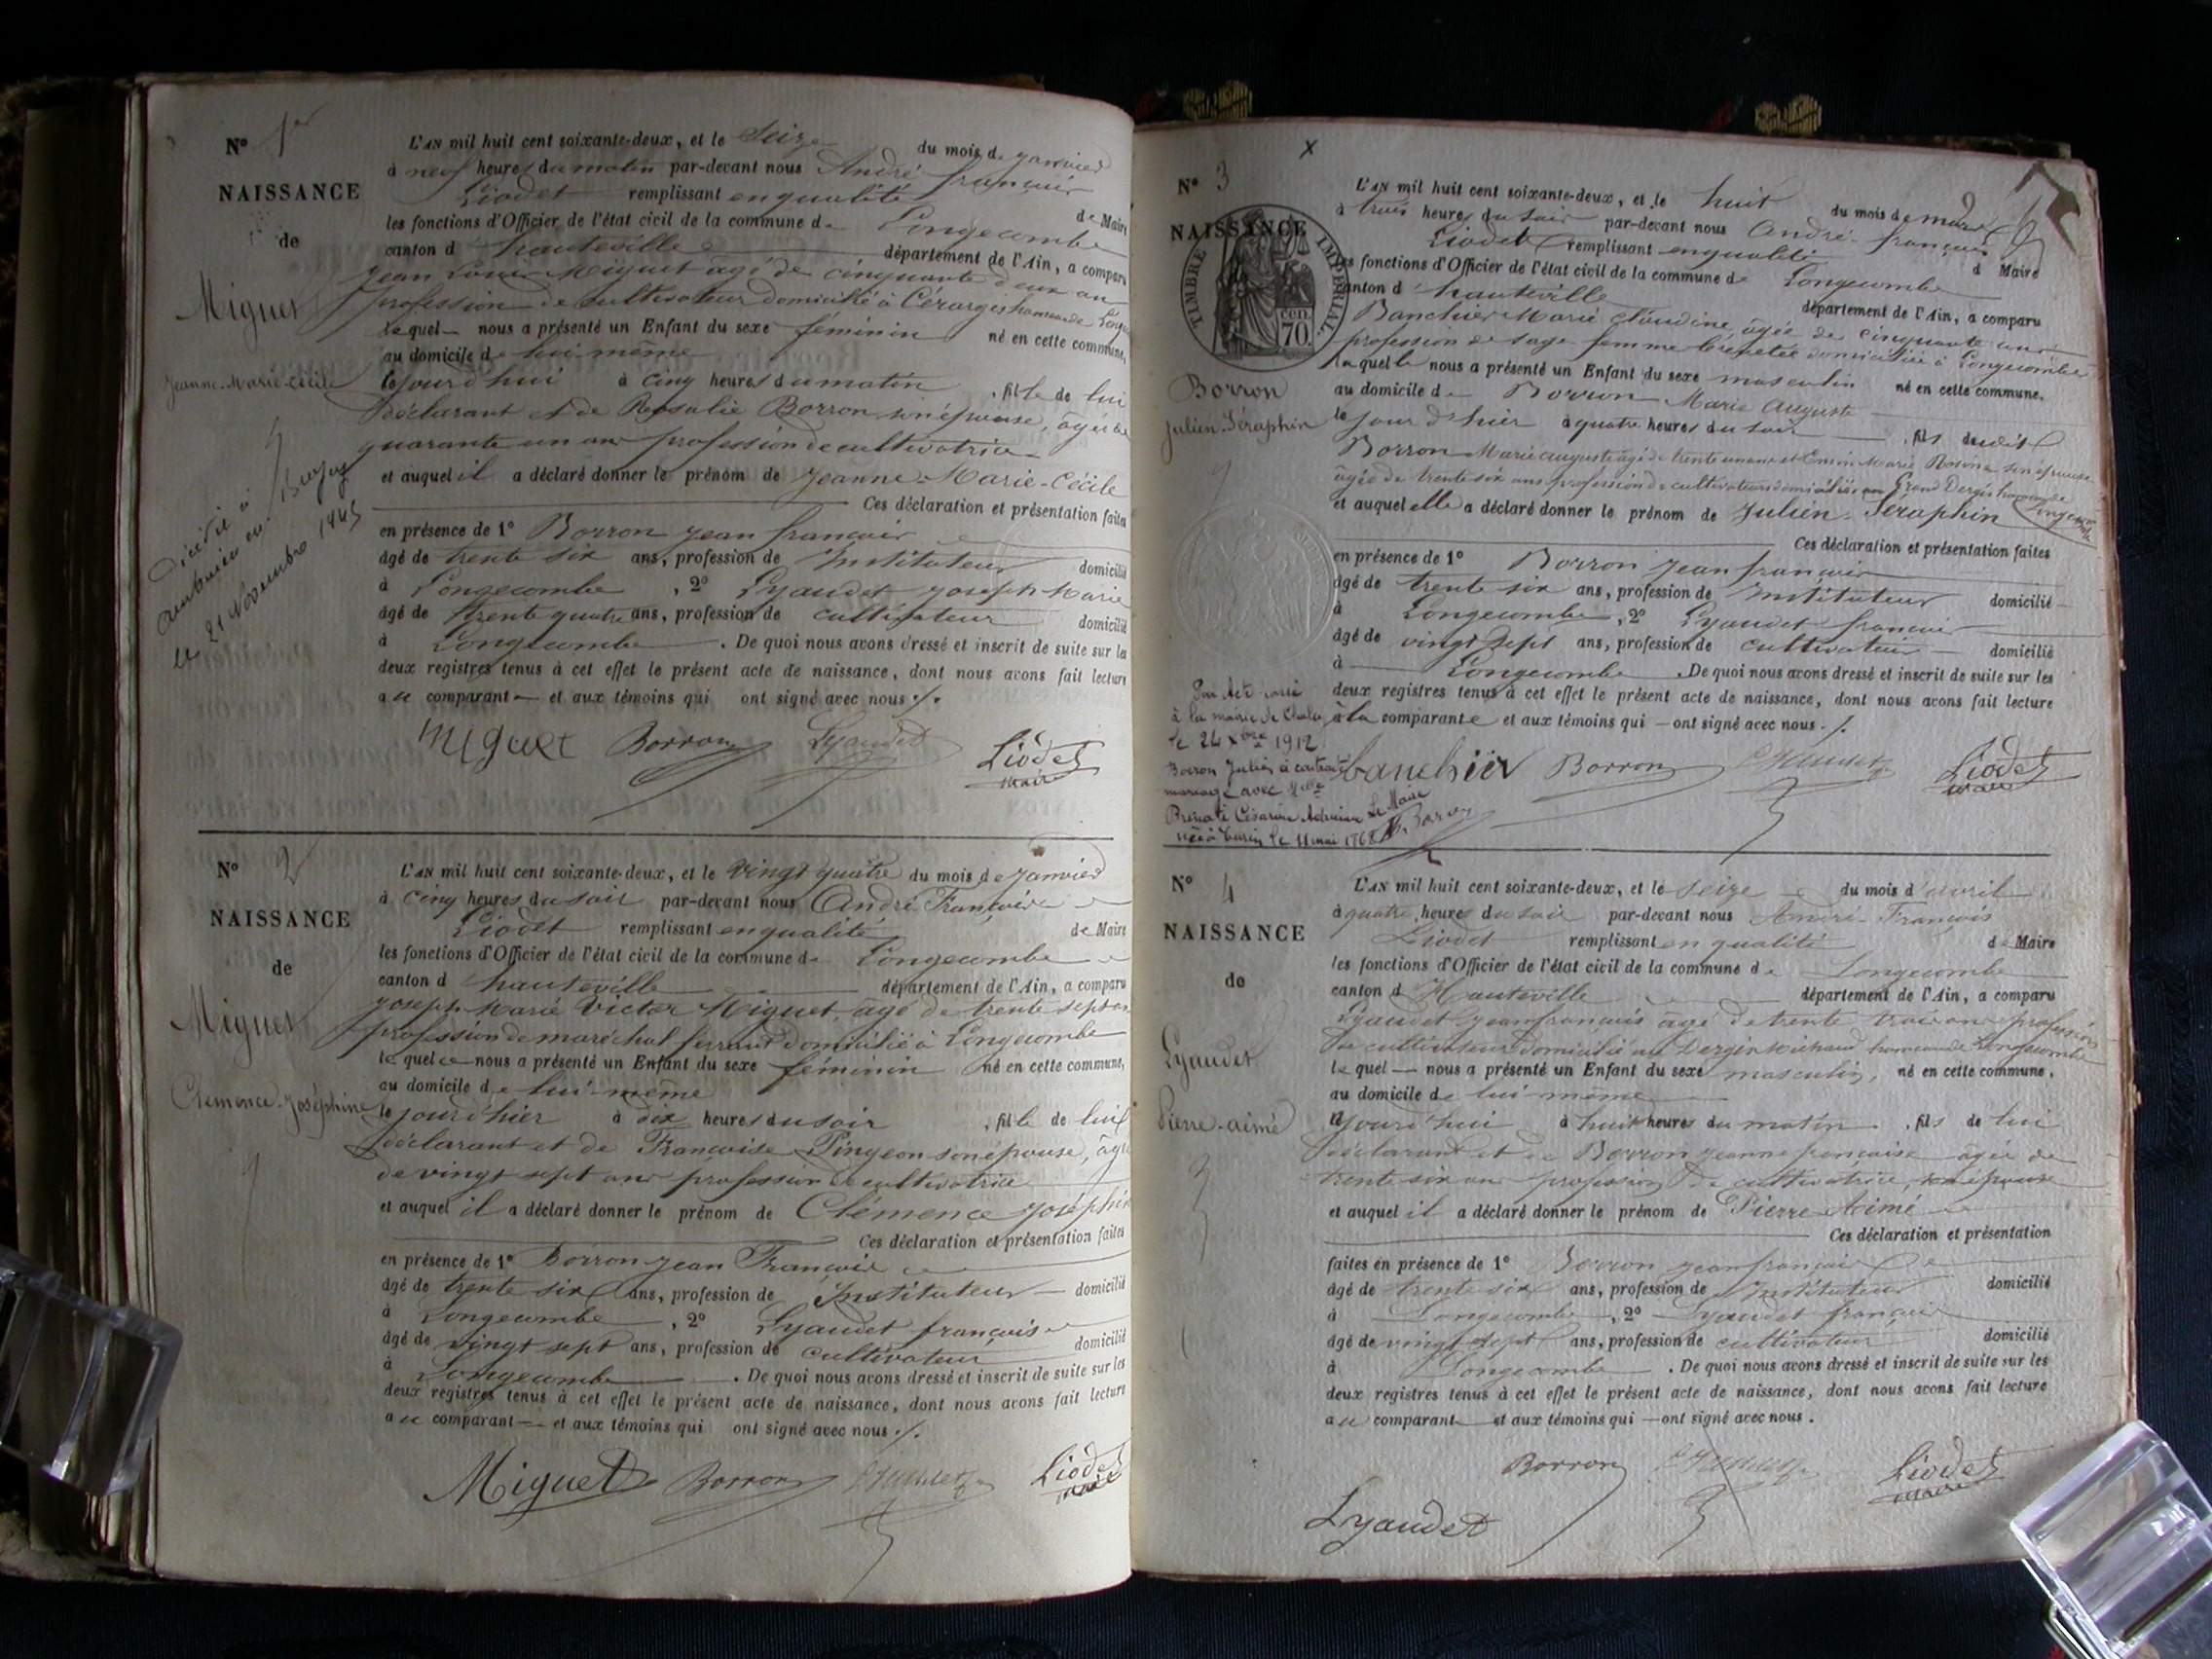 N° 1er
NAISSANCE
de
Miguet
Jeanne-Marie-Cécile
Décédée à
Ambérieu en Bugey
le 21 Novembre 1945
L'AN mil huit cent soixante-deux, et le Seize du mois de janvier
à neuf heures du matin par-devant nous André françois
Liodet remplissant en qualité de Maire
les fonctions d'Officier de l'état civil de la commune de Longecombe
canton d'hauteville département de l'Ain, a comparu
Jean Louis Miguet âgé de cinquante deux ans
profession de cultivateur domicilié à Cérarges hameau de Longe
lequel nous a présenté un Enfant du sexe féminin né en cette commune,
au domicile de lui-même
le jourd'hui à cinq heures du matin , fille de lui
déclarant et de Rosalie Borron son épouse, âgée de
quarante un ans profession de cultivatrice
et auquel il a déclaré donner le prénom de Jeanne-Marie-Cécile
Ces déclaration et présentation faites
en présence de 1° Borron jean françois
âgé de trente six ans, profession de Instituteur domicilié
à Longecombe , 2° Lyaudet joseph Marie
âgé de trente quatre ans, profession de cultivateur domicilié
à Longecombe . De quoi nous avons dressé et inscrit de suite sur les
deux registres tenus à cet effet le présent acte de naissance, dont nous avons fait lecture
au comparant et aux témoins qui ont signé avec nous ./.
Miguet Borron Lyaudet Liodet
maire
N° 2
NAISSANCE
de
Miguet
Clémence-Joséphine
L'AN mil huit cent soixante-deux, et le vingt quatre du mois de janvier
à cinq heures du soir par-devant nous André François
Liodet remplissant en qualité de Maire
les fonctions d'Officier de l'état civil de la commune de Longecombe
canton d'hauteville département de l'Ain, a comparu
joseph Marie Victor Miguet, âgé de trente sept ans
profession de maréchal ferrant domicilié à Longecombe
lequel nous a présenté un Enfant du sexe féminin né en cette commune,
au domicile de lui-même
le jour d'hier à dix heures du soir , fille de lui
déclarant et de Françoise Pingeon son épouse, âgée
de vingt sept ans profession de cultivatrice
et auquel il a déclaré donner le prénom de Clémence joséphine
Ces déclaration et présentation faites
en présence de 1° Borron jean François
âgé de trente six ans, profession de Instituteur domicilié
à Longecombe , 2° Lyaudet françois
âgé de vingt sept ans, profession de cultivateur domicilié
à Longecombe . De quoi nous avons dressé et inscrit de suite sur les
deux registres tenus à cet effet le présent acte de naissance, dont nous avons fait lecture
au comparant et aux témoins qui ont signé avec nous ./.
Miguet Borron Lyaudet Liodet
maire
N° 3
NAISSANCE
TIMBRE IMPÉRIAL
CEN.
70.
Borron
Julien-Séraphin
à la mairie de
le 24 Xbre 1912
Borron Julien a contracté
mariage avec Melle
Césarine
née à le 11 mai 186
Le Maire
Borron
x
L'AN mil huit cent soixante-deux, et le huit du mois de mars
à trois heures du soir par-devant nous André-françois
Liodet remplissant en qualité d Maire
les fonctions d'Officier de l'état civil de la commune de Longecombe
canton d'hauteville département de l'Ain, a comparu
Banchier Marie Claudine, âgée de cinquante ans
profession de sage femme brevetée domiciliée à Longecombe
laquelle nous a présenté un Enfant du sexe masculin né en cette commune.
au domicile de Borron Marie Auguste
le jour d'hier à quatre heures du soir , fils dudit
Borron Marie auguste âgé de trente un ans et Marie Rosine son épouse
âgée de trente six ans profession de cultivateurs domiciliés au Grand Dergis hameau de
Longecombe
et auquel elle a déclaré donner le prénom de Julien-Séraphin
Ces déclaration et présentation faites
en présence de 1° Borron jean françois
âgé de trente six ans, profession de Instituteur domicilié
à Longecombe , 2° Lyaudet françois
âgé de vingt sept ans, profession de cultivateur domicilié
à Longecombe . De quoi nous avons dressé et inscrit de suite sur les
deux registres tenus à cet effet le présent acte de naissance, dont nous avons fait lecture
à la comparante et aux témoins qui ont signé avec nous ./.
banchier Borron Lyaudet Liodet
maire
N° 4
NAISSANCE
de
Lyaudet
Pierre-aimé
L'AN mil huit cent soixante-deux, et le seize du mois d'avril
à quatre heures du soir par-devant nous André-François
Liodet remplissant en qualité de Maire
les fonctions d'Officier de l'état civil de la commune de Longecombe
canton d'Hauteville département de l'Ain, a comparu
Lyaudet jean françois âgé de trente trois ans profession
de cultivateur domicilié au Dergis Michaud hameau de Longecombe
lequel nous a présenté un Enfant du sexe masculin, né en cette commune.
au domicile de lui-même
le jourd'hui à huit heures du matin , fils de lui
déclarant et de Borron jeanne françoise âgée de
trente six ans profession de cultivatrice, son épouse
et auquel il a déclaré donner le prénom de Pierre Aimé
Ces déclaration et présentation
faites en présence de 1° Borron jean françois
âgé de trente six ans, profession de Instituteur domicilié
à Longecombe , 2° Lyaudet françois
âgé de vingt sept ans, profession de cultivateur domicilié
à Longecombe . De quoi nous avons dressé et inscrit de suite sur les
deux registres tenus à cet effet le présent acte de naissance, dont nous avons fait lecture
au comparant et aux témoins qui ont signé avec nous .
Borron Lyaudet Liodet
maire
Lyaudet